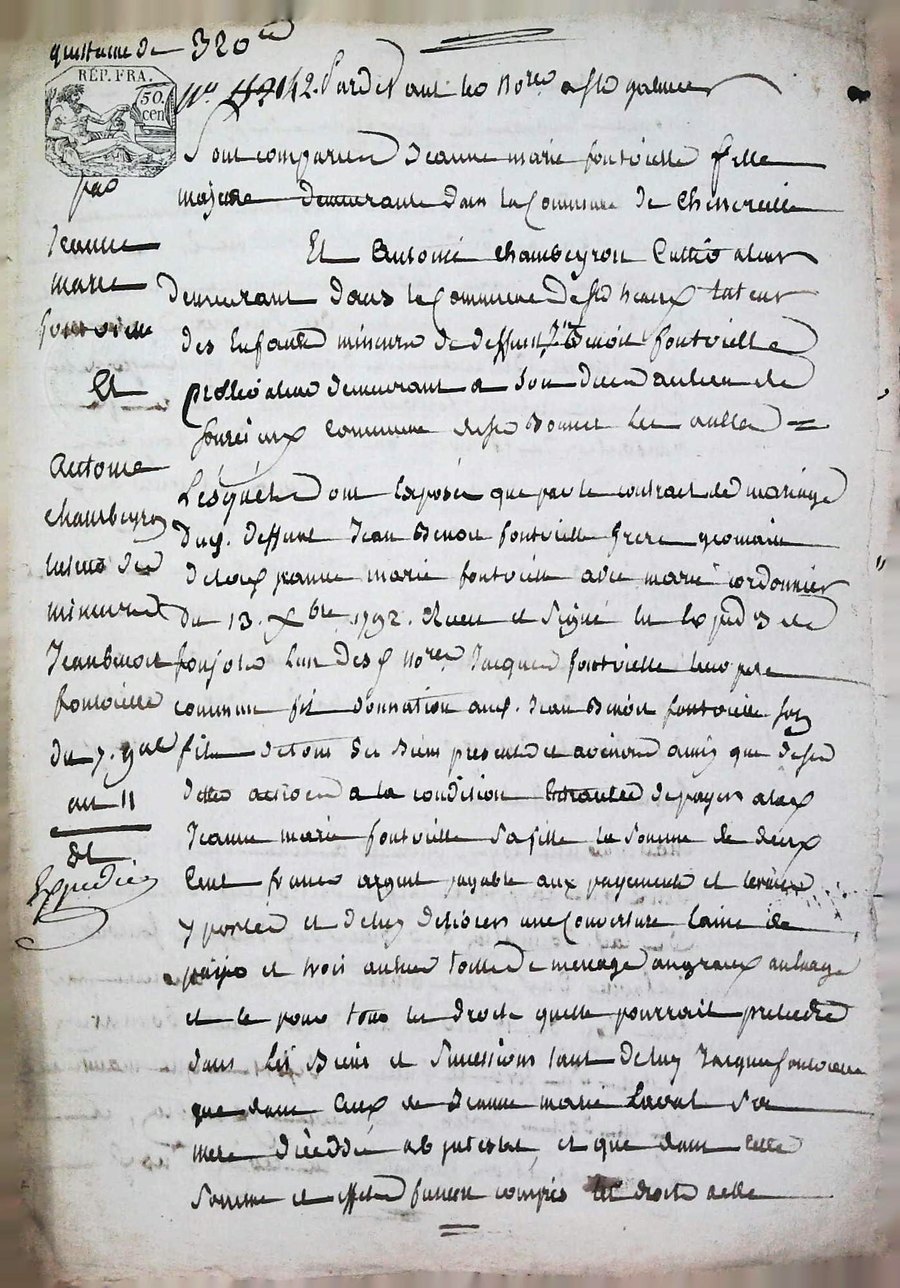 quittance de 320
RÉP. FRA.
50.
cen
142. Pardevant les No.res a St galmier
Sont comparus Jeanne marie fontvielle fille
majeure demeurante dans la Commune de Chevrieres
Et Antoine Chambeyron Cultivateur
demeurant dans la Commune de St heaux tuteur
des Enfants mineurs de deffunt Jn Benoit fontvielle
demeurant a son deces au lieu de
commune de St Bonnet les oulles =
Lesquels ont Exposés que par le contrat de mariage
dud. deffunt Jean Benoit fontvielle frere germain
de lad. Jeanne marie fontvielle avec marie cordonnier
du 13. Xbre 1792. Recu et Signé
l'un des d. No.res Jacques fontvielle leur pere
commun fit donnation aud. Jean Benoit fontvielle son
fils de tous ses Biens presents et avenirs ainsi que de ses
dettes actives a la condition de payer a lad.
Jeanne marie fontvielle sa fille la Somme de deux
Cent francs argent payable aux payements et termes
y portés et de luy delivrer une Couverture laine de
et trois aulnes toille de menage
et le pour tous les droits quelle pourrait pretendre
dans les Biens et Successions tant de luy Jacques fontvielle
que dans Ceux de Jeanne marie Laval Sa
mere décédée ab intestat, et que dans cette
Somme et effets fussent compris les droits
par
Jeanne
marie
fontvielle
Et
Antoine
chambeyron
tuteur des
mineurs
Jean benoit
fontvielle
du 7. 9bre
an 11
Et
Expedié